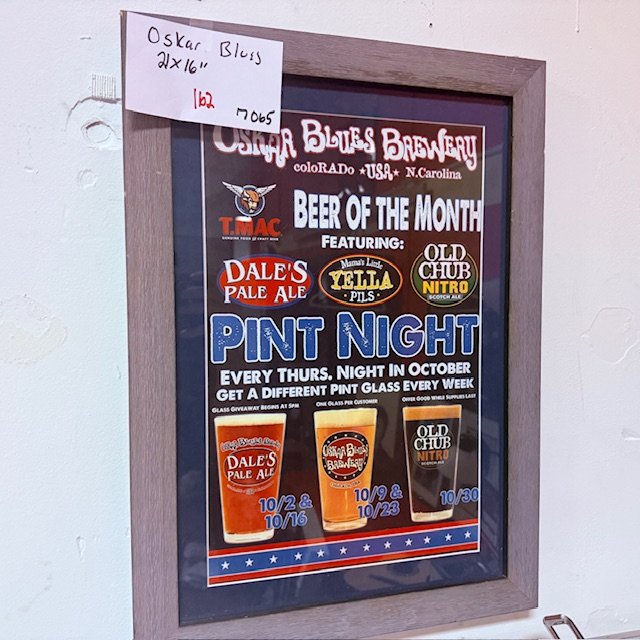 Oskar Blues
21x16"
162
7065
OSKAR BLUES BREWERY
coloRADo ★USA★ N.Carolina
T.MAC
BEER OF THE MONTH
FEATURING:
DALE'S
PALE ALE
Mama's Little
YELLA
PILS
OLD
CHUB
NITRO
SCOTCH ALE
PINT NIGHT
EVERY THURS. NIGHT IN OCTOBER
GET A DIFFERENT PINT GLASS EVERY WEEK
GLASS GIVEAWAY BEGINS AT 5PM
ONE GLASS PER CUSTOMER
OFFER GOOD WHILE SUPPLIES LAST
DALE'S
PALE ALE
10/2 &
10/16
OSKAR BLUES
BREWERY
10/9 &
10/23
OLD
CHUB
NITRO
SCOTCH ALE
10/30